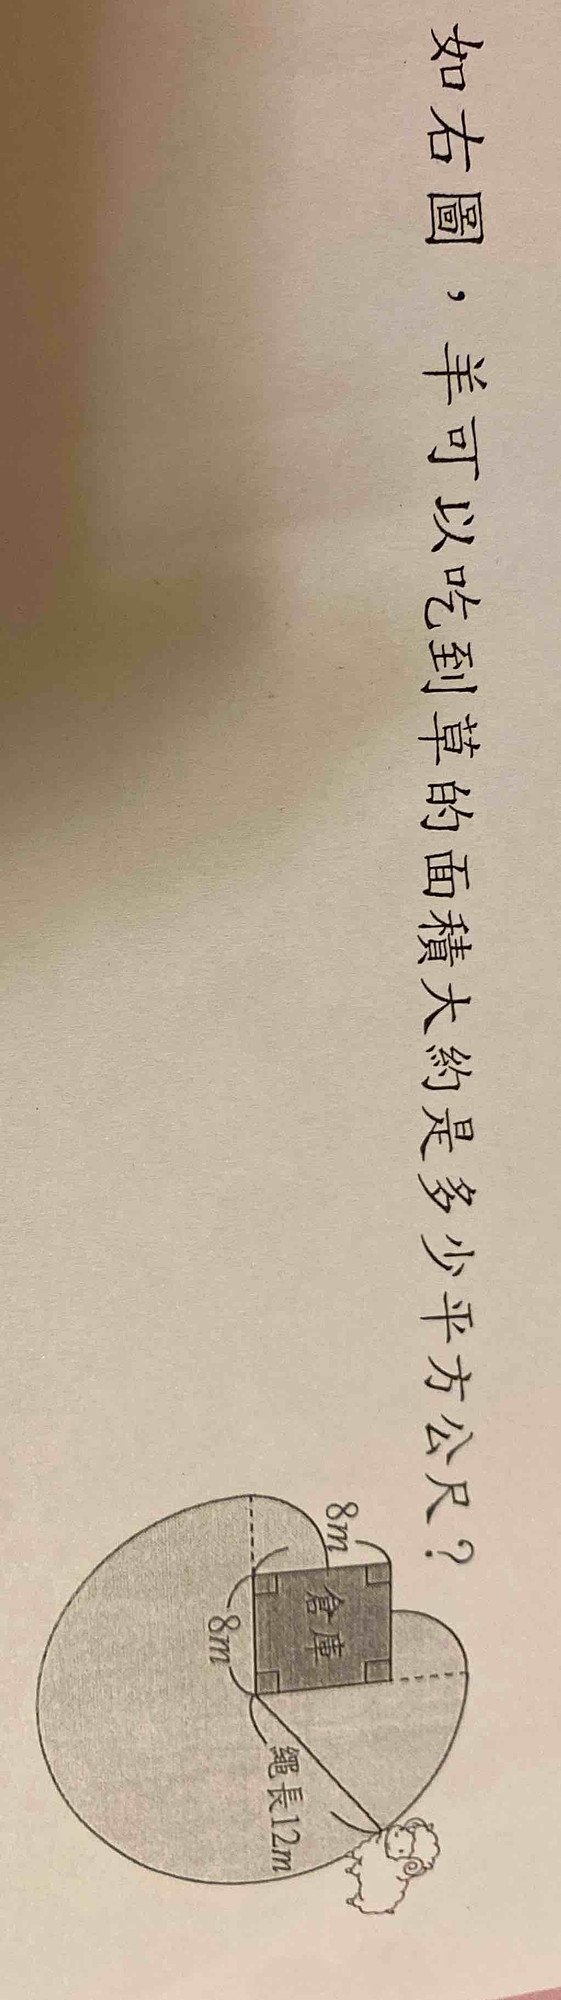 如右圖，羊可以吃到草的面積大約是多少平方公尺？
8m
倉庫
8m
繩長12m